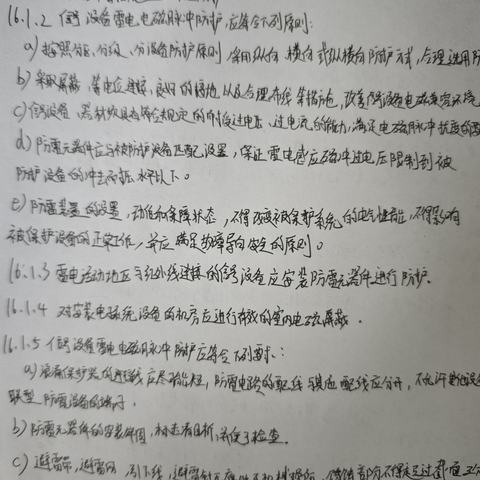 16.1.2 信号设备雷电电磁脉冲防护,应符合下列原则:
a) 按照分区、分级、分设备防护原则,采用纵向、横向或纵横向防护方式,合理选用防
b) 采取屏蔽、等电位连接、良好的接地以及合理布线等措施,改善信号设备电磁兼容环境
c) 信号设备、器材须具有符合规定的耐过电压、过电流的能力,满足电磁脉冲抗扰度的要
d) 防雷元器件应与被防护设备匹配设置,保证雷电感应电磁冲过电压限制到被
防护设备的冲击耐压水平以下。
e) 防雷装置的设置、动作和故障状态,不得改变被保护系统的电气性能,不得影响
被保护设备的正常工作,并应满足故障导向安全的原则。
16.1.3 雷电活动地区与室外线连接的信号设备应安装防雷元器件进行防护。
16.1.4 对安装电子系统设备的机房应进行有效的室内电磁屏蔽.
16.1.5 信号设备雷电电磁脉冲防护应符合下列要求:
a) 浪涌保护器的连接线应尽可能短,防雷电路的配线与其他配线应分开,不允许其他设备
联型防雷设备的端子.
b) 防雷元器件的安装牢固,标志看目析,并便于检查.
c) 避雷带,避雷网,引下线,避雷针